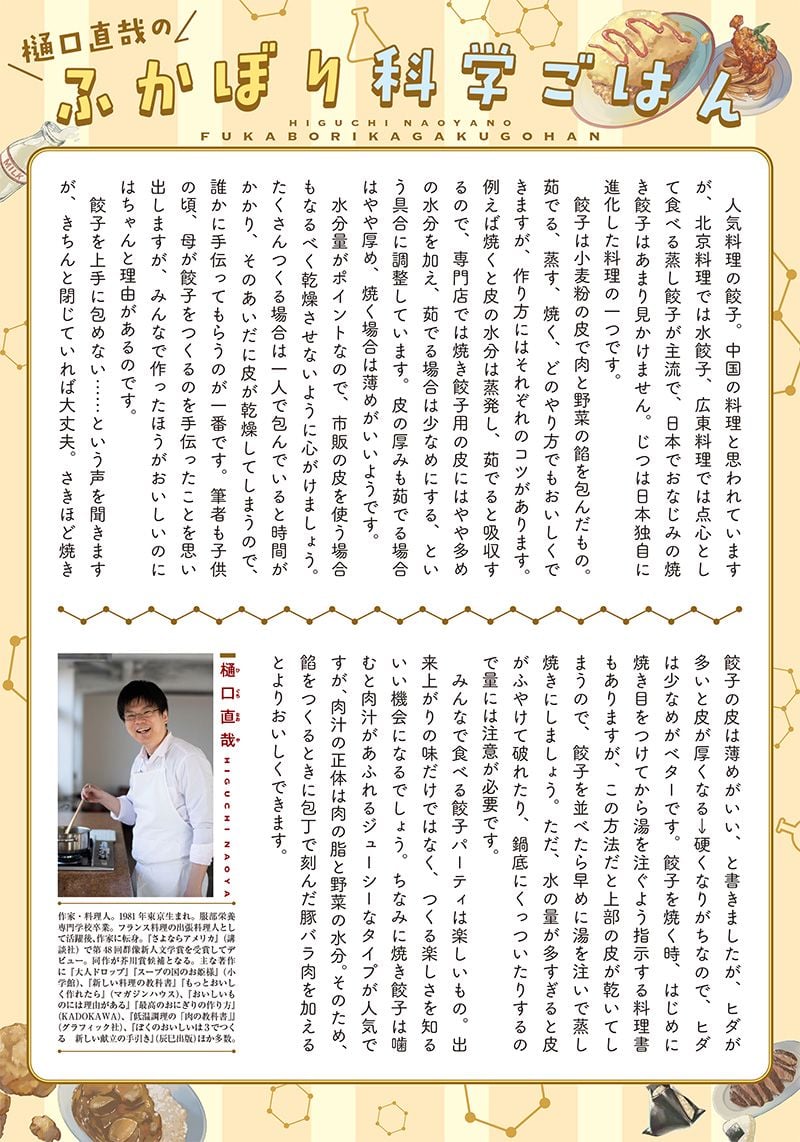 樋口直哉の
ふかぼり科学ごはん
HIGUCHI NAOYANO
FUKABORIKAGAKUGOHAN
MILK
人気料理の餃子。中国の料理と思われています
が、北京料理では水餃子、広東料理では点心とし
て食べる蒸し餃子が主流で、日本でおなじみの焼
き餃子はあまり見かけません。じつは日本独自に
進化した料理の一つです。
餃子は小麦粉の皮で肉と野菜の餡を包んだもの。
茹でる、蒸す、焼く、どのやり方でもおいしくで
きますが、作り方にはそれぞれのコツがあります。
例えば焼くと皮の水分は蒸発し、茹でると吸収す
るので、専門店では焼き餃子用の皮にはやや多め
の水分を加え、茹でる場合は少なめにする、とい
う具合に調整しています。皮の厚みも茹でる場合
はやや厚め、焼く場合は薄めがいいようです。
水分量がポイントなので、市販の皮を使う場合
もなるべく乾燥させないように心がけましょう。
たくさんつくる場合は一人で包んでいると時間が
かかり、そのあいだに皮が乾燥してしまうので、
誰かに手伝ってもらうのが一番です。筆者も子供
の頃、母が餃子をつくるのを手伝ったことを思い
出しますが、みんなで作ったほうがおいしいのに
はちゃんと理由があるのです。
餃子を上手に包めない……という声を聞きます
が、きちんと閉じていれば大丈夫。さきほど焼き
餃子の皮は薄めがいい、と書きましたが、ヒダが
多いと皮が厚くなる→硬くなりがちなので、ヒダ
は少なめがベターです。餃子を焼く時、はじめに
焼き目をつけてから湯を注ぐよう指示する料理書
もありますが、この方法だと上部の皮が乾いてし
まうので、餃子を並べたら早めに湯を注いで蒸し
焼きにしましょう。ただ、水の量が多すぎると皮
がふやけて破れたり、鍋底にくっついたりするの
で量には注意が必要です。
みんなで食べる餃子パーティは楽しいもの。出
来上がりの味だけではなく、つくる楽しさを知る
いい機会になるでしょう。ちなみに焼き餃子は噛
むと肉汁があふれるジューシーなタイプが人気で
すが、肉汁の正体は肉の脂と野菜の水分。そのため、
餡をつくるときに包丁で刻んだ豚バラ肉を加える
とよりおいしくできます。
樋口直哉
ひぐちなおや
HIGUCHI NAOYA
作家・料理人。1981年東京生まれ。服部栄養
専門学校卒業。フランス料理の出張料理人とし
て活躍後、作家に転身。『さよならアメリカ』(講
談社)で第48回群像新人文学賞を受賞してデ
ビュー。同作が芥川賞候補となる。主な著作
に『大人ドロップ』『スープの国のお姫様』(小
学館)、『新しい料理の教科書』『もっとおいし
く作れたら』(マガジンハウス)、『おいしいも
のには理由がある』『最高のおにぎりの作り方』
(KADOKAWA)、『低温調理の「肉の教科書」』
(グラフィック社)、『ぼくのおいしいは3でつく
る 新しい献立の手引き』(辰巳出版)ほか多数。